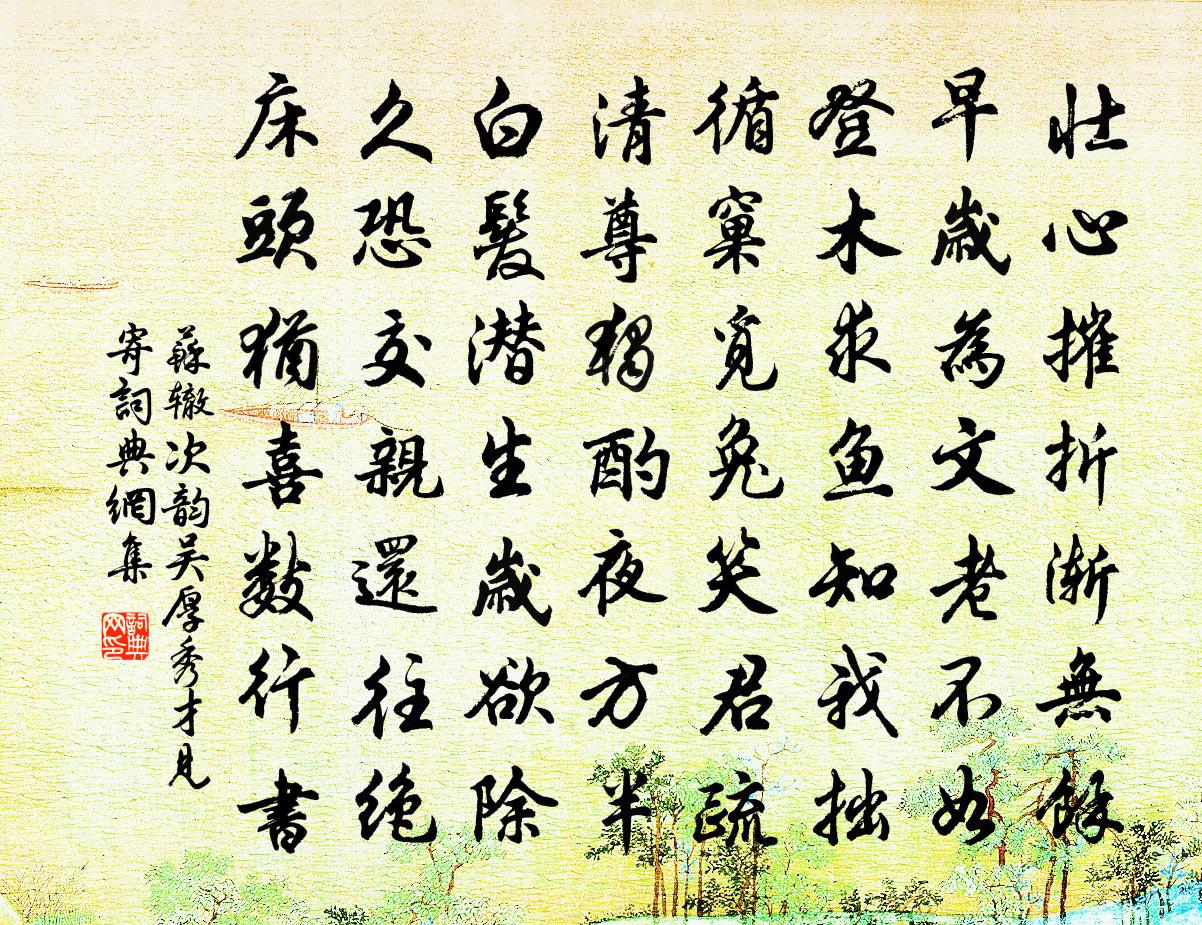 壮心摧折渐無餘
早歲為文老不如
登木求魚知我拙
循窠覓兔笑君疏
清尊獨酌夜方半
白髮潜生歲欲除
久恐交親還往绝
床頭猶喜數行書
蘇辙次韵吴厚秀才見
寄詞典網集
詞典网印